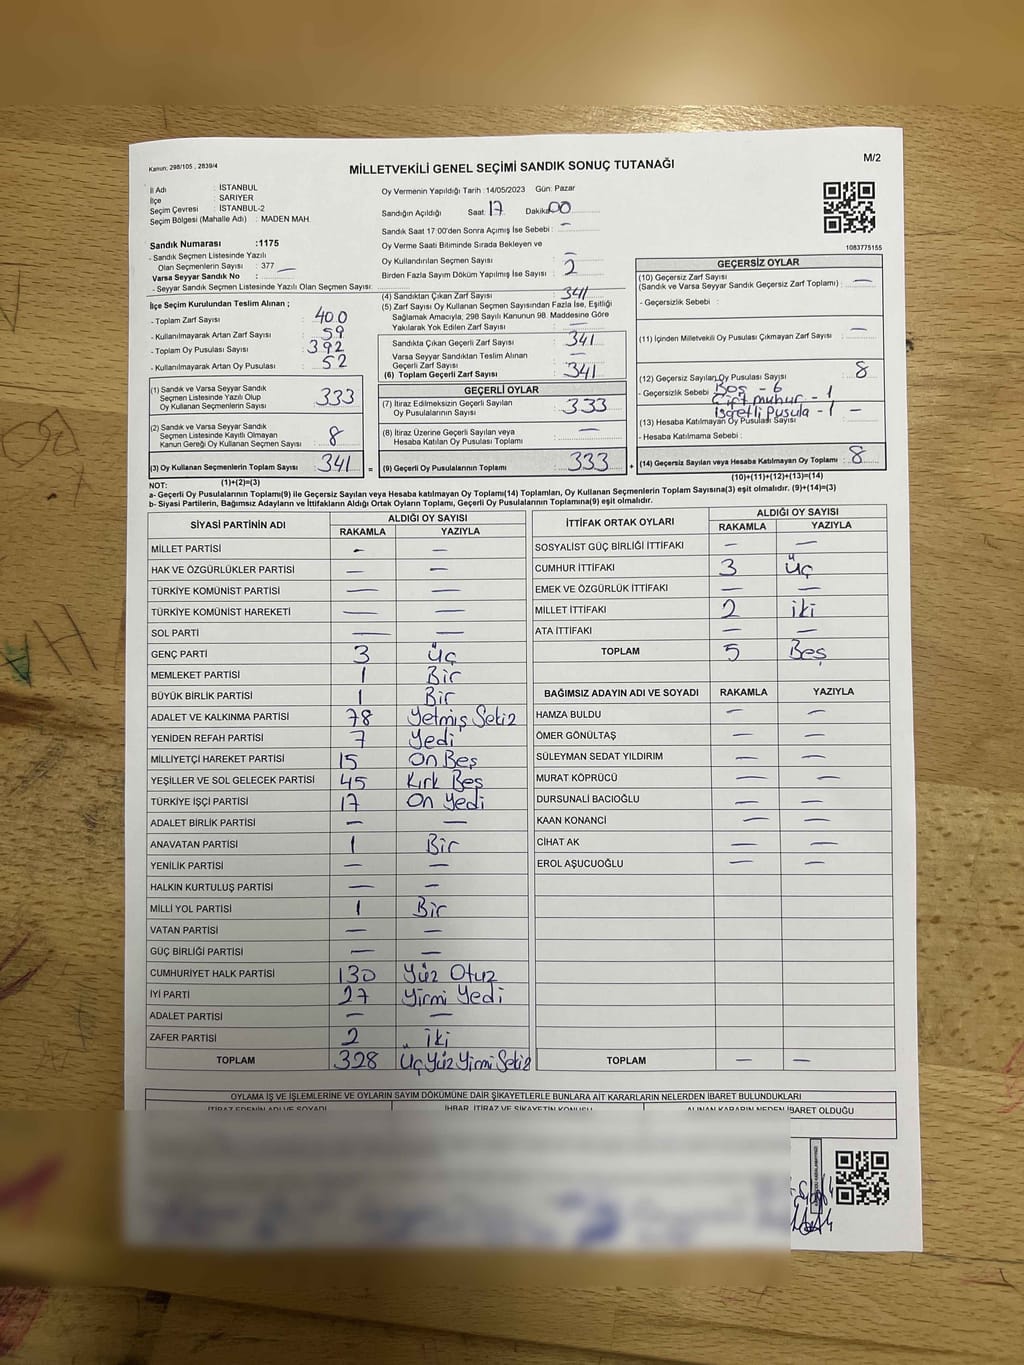 Kanun: 298/105 , 2839/4
MİLLETVEKİLİ GENEL SEÇİMİ SANDIK SONUÇ TUTANAĞI
M/2
İl Adı : İSTANBUL
İlçe : SARIYER
Seçim Çevresi : İSTANBUL-2
Seçim Bölgesi (Mahalle Adı) : MADEN MAH.
Oy Vermenin Yapıldığı Tarih : 14/05/2023 Gün: Pazar
Sandığın Açıldığı Saat: 17 Dakika: 00
Sandık Saat 17:00'den Sonra Açılmış İse Sebebi : —
Oy Verme Saati Bitiminde Sırada Bekleyen ve
Oy Kullandırılan Seçmen Sayısı : —
Birden Fazla Sayım Döküm Yapılmış İse Sayısı : 2
1083775155
Sandık Numarası :1175
- Sandık Seçmen Listesinde Yazılı
Olan Seçmenlerin Sayısı : 377 —
Varsa Seyyar Sandık No :
- Seyyar Sandık Seçmen Listesinde Yazılı Olan Seçmen Sayısı:
İlçe Seçim Kurulundan Teslim Alınan ;
- Toplam Zarf Sayısı : 400
- Kullanılmayarak Artan Zarf Sayısı : 59
- Toplam Oy Pusulası Sayısı : 392
- Kullanılmayarak Artan Oy Pusulası : 52
(1) Sandık ve Varsa Seyyar Sandık
Seçmen Listesinde Yazılı Olup
Oy Kullanan Seçmenlerin Sayısı : 333
(2) Sandık ve Varsa Seyyar Sandık
Seçmen Listesinde Kayıtlı Olmayan
Kanun Gereği Oy Kullanan Seçmen Sayısı : 8
(3) Oy Kullanan Seçmenlerin Toplam Sayısı : 341 =
(1)+(2)=(3)
(4) Sandıktan Çıkan Zarf Sayısı : 341
(5) Zarf Sayısı Oy Kullanan Seçmen Sayısından Fazla İse, Eşitliği
Sağlamak Amacıyla; 298 Sayılı Kanunun 98. Maddesine Göre
Yakılarak Yok Edilen Zarf Sayısı : —
Sandıkta Çıkan Geçerli Zarf Sayısı : 341
Varsa Seyyar Sandıktan Teslim Alınan
Geçerli Zarf Sayısı : —
(6) Toplam Geçerli Zarf Sayısı : 341
GEÇERLİ OYLAR
(7) İtiraz Edilmeksizin Geçerli Sayılan
Oy Pusulalarının Sayısı : 333
(8) İtiraz Üzerine Geçerli Sayılan veya
Hesaba Katılan Oy Pusulası Toplamı : —
(9) Geçerli Oy Pusulalarının Toplamı : 333 +
GEÇERSİZ OYLAR
(10) Geçersiz Zarf Sayısı
(Sandık ve Varsa Seyyar Sandık Geçersiz Zarf Toplamı) : —
- Geçersizlik Sebebi :
(11) İçinden Milletvekili Oy Pusulası Çıkmayan Zarf Sayısı : —
(12) Geçersiz Sayılan Oy Pusulası Sayısı : 8
- Geçersizlik Sebebi : Boş - 6
Çift mühür - 1
İşaretli Pusula - 1
(13) Hesaba Katılmayan Oy Pusulası Sayısı : —
- Hesaba Katılmama Sebebi :
(14) Geçersiz Sayılan veya Hesaba Katılmayan Oy Toplamı : 8
(10)+(11)+(12)+(13)=(14)
NOT:
a- Geçerli Oy Pusulalarının Toplamı(9) ile Geçersiz Sayılan veya Hesaba katılmayan Oy Toplamı(14) Toplamları, Oy Kullanan Seçmenlerin Toplam Sayısına(3) eşit olmalıdır. (9)+(14)=(3)
b- Siyasi Partilerin, Bağımsız Adayların ve İttifakların Aldığı Ortak Oyların Toplamı, Geçerli Oy Pusulalarının Toplamına(9) eşit olmalıdır.
SİYASİ PARTİNİN ADI ALDIĞI OY SAYISI
RAKAMLA YAZIYLA
MİLLET PARTİSİ — —
HAK VE ÖZGÜRLÜKLER PARTİSİ — —
TÜRKİYE KOMÜNİST PARTİSİ — —
TÜRKİYE KOMÜNİST HAREKETİ — —
SOL PARTİ — —
GENÇ PARTİ 3 üç
MEMLEKET PARTİSİ 1 Bir
BÜYÜK BİRLİK PARTİSİ 1 Bir
ADALET VE KALKINMA PARTİSİ 78 Yetmiş Sekiz
YENİDEN REFAH PARTİSİ 7 Yedi
MİLLİYETÇİ HAREKET PARTİSİ 15 On Beş
YEŞİLLER VE SOL GELECEK PARTİSİ 45 Kırk Beş
TÜRKİYE İŞÇİ PARTİSİ 17 On Yedi
ADALET BİRLİK PARTİSİ — —
ANAVATAN PARTİSİ 1 Bir
YENİLİK PARTİSİ — —
HALKIN KURTULUŞ PARTİSİ — —
MİLLİ YOL PARTİSİ 1 Bir
VATAN PARTİSİ — —
GÜÇ BİRLİĞİ PARTİSİ — —
CUMHURİYET HALK PARTİSİ 130 Yüz Otuz
İYİ PARTİ 27 Yirmi Yedi
ADALET PARTİSİ — —
ZAFER PARTİSİ 2 iki
TOPLAM 328 ÜçYüzYirmiSekiz
İTTİFAK ORTAK OYLARI ALDIĞI OY SAYISI
RAKAMLA YAZIYLA
SOSYALİST GÜÇ BİRLİĞİ İTTİFAKI — —
CUMHUR İTTİFAKI 3 üç
EMEK VE ÖZGÜRLÜK İTTİFAKI — —
MİLLET İTTİFAKI 2 iki
ATA İTTİFAKI — —
TOPLAM 5 Beş
BAĞIMSIZ ADAYIN ADI VE SOYADI RAKAMLA YAZIYLA
HAMZA BULDU — —
ÖMER GÖNÜLTAŞ — —
SÜLEYMAN SEDAT YILDIRIM — —
MURAT KÖPRÜCÜ — —
DURSUNALİ BACIOĞLU — —
KAAN KONANCİ — —
CİHAT AK — —
EROL AŞUCUOĞLU — —
TOPLAM — —
OYLAMA İŞ VE İŞLEMLERİNE VE OYLARIN SAYIM DÖKÜMÜNE DAİR ŞİKAYETLERLE BUNLARA AİT KARARLARIN NELERDEN İBARET BULUNDUKLARI
İTİRAZ EDENİN ADI VE SOYADI İHBAR, İTİRAZ VE ŞİKAYETİN KONUSU ALINAN KARARIN NEDEN İBARET OLDUĞU